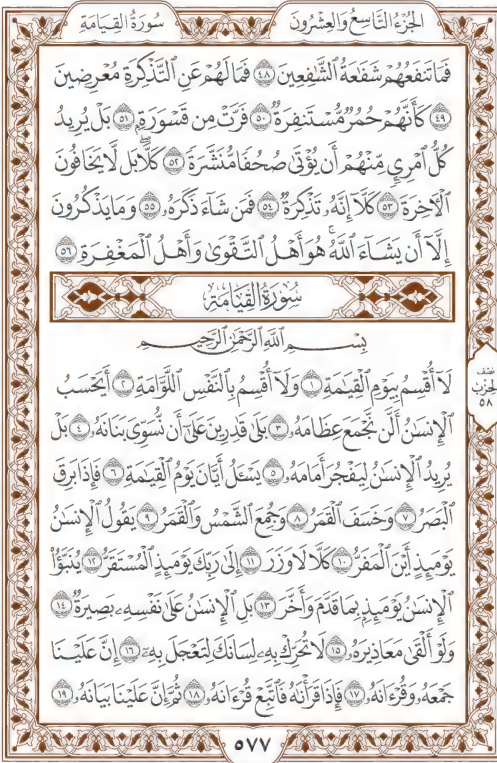 سُورَةُ القِيَامَةِ
الجُزْءُ التَّاسِعُ وَالعِشْرُونَ
فَمَا تَنفَعُهُمْ شَفَٰعَةُ ٱلشَّٰفِعِينَ ٤٨ فَمَا لَهُمْ عَنِ ٱلتَّذْكِرَةِ مُعْرِضِينَ
٤٩ كَأَنَّهُمْ حُمُرٌ مُّسْتَنفِرَةٌ ٥٠ فَرَّتْ مِن قَسْوَرَةٍۭ ٥١ بَلْ يُرِيدُ
كُلُّ ٱمْرِئٍ مِّنْهُمْ أَن يُؤْتَىٰ صُحُفًا مُّنَشَّرَةً ٥٢ كَلَّاۖ بَل لَّا يَخَافُونَ
ٱلْأَخِرَةَ ٥٣ كَلَّآ إِنَّهُۥ تَذْكِرَةٌ ٥٤ فَمَن شَآءَ ذَكَرَهُۥ ٥٥ وَمَا يَذْكُرُونَ
إِلَّآ أَن يَشَآءَ ٱللَّهُۚ هُوَ أَهْلُ ٱلتَّقْوَىٰ وَأَهْلُ ٱلْمَغْفِرَةِ ٥٦
سُورَةُ القِيَامَةِ
بِسْمِ ٱللَّهِ ٱلرَّحْمَٰنِ ٱلرَّحِيمِ
لَآ أُقْسِمُ بِيَوْمِ ٱلْقِيَٰمَةِ ١ وَلَآ أُقْسِمُ بِٱلنَّفْسِ ٱللَّوَّامَةِ ٢ أَيَحْسَبُ
ٱلْإِنسَٰنُ أَلَّن نَّجْمَعَ عِظَامَهُۥ ٣ بَلَىٰ قَٰدِرِينَ عَلَىٰٓ أَن نُّسَوِّىَ بَنَانَهُۥ ٤ بَلْ
يُرِيدُ ٱلْإِنسَٰنُ لِيَفْجُرَ أَمَامَهُۥ ٥ يَسْـَٔلُ أَيَّانَ يَوْمُ ٱلْقِيَٰمَةِ ٦ فَإِذَا بَرِقَ
ٱلْبَصَرُ ٧ وَخَسَفَ ٱلْقَمَرُ ٨ وَجُمِعَ ٱلشَّمْسُ وَٱلْقَمَرُ ٩ يَقُولُ ٱلْإِنسَٰنُ
يَوْمَئِذٍ أَيْنَ ٱلْمَفَرُّ ١٠ كَلَّا لَا وَزَرَ ١١ إِلَىٰ رَبِّكَ يَوْمَئِذٍ ٱلْمُسْتَقَرُّ ١٢ يُنَبَّؤُا۟
ٱلْإِنسَٰنُ يَوْمَئِذٍۭ بِمَا قَدَّمَ وَأَخَّرَ ١٣ بَلِ ٱلْإِنسَٰنُ عَلَىٰ نَفْسِهِۦ بَصِيرَةٌ ١٤
وَلَوْ أَلْقَىٰ مَعَاذِيرَهُۥ ١٥ لَا تُحَرِّكْ بِهِۦ لِسَانَكَ لِتَعْجَلَ بِهِۦٓ ١٦ إِنَّ عَلَيْنَا
جَمْعَهُۥ وَقُرْءَانَهُۥ ١٧ فَإِذَا قَرَأْنَٰهُ فَٱتَّبِعْ قُرْءَانَهُۥ ١٨ ثُمَّ إِنَّ عَلَيْنَا بَيَانَهُۥ ١٩
نصف
الحزب
٥٨
٥٧٧